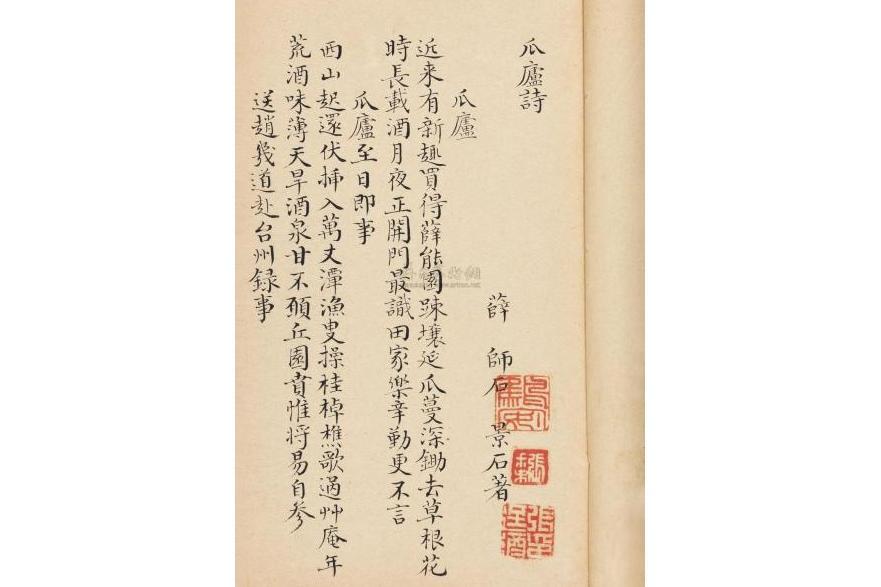 瓜廬詩
薛 師石 景石著
瓜廬
近来有新趣買得薛能園踈壤延瓜蔓深鋤去草根花
時長載酒月夜正開門最識田家樂辛勤更不言
瓜廬至日即事
西山起還伏揷入萬丈潭漁叟操桂棹樵歌過艸庵年
荒酒味薄天旱酒泉甘不願丘園賁惟将易自參
送趙幾道赴台州録事